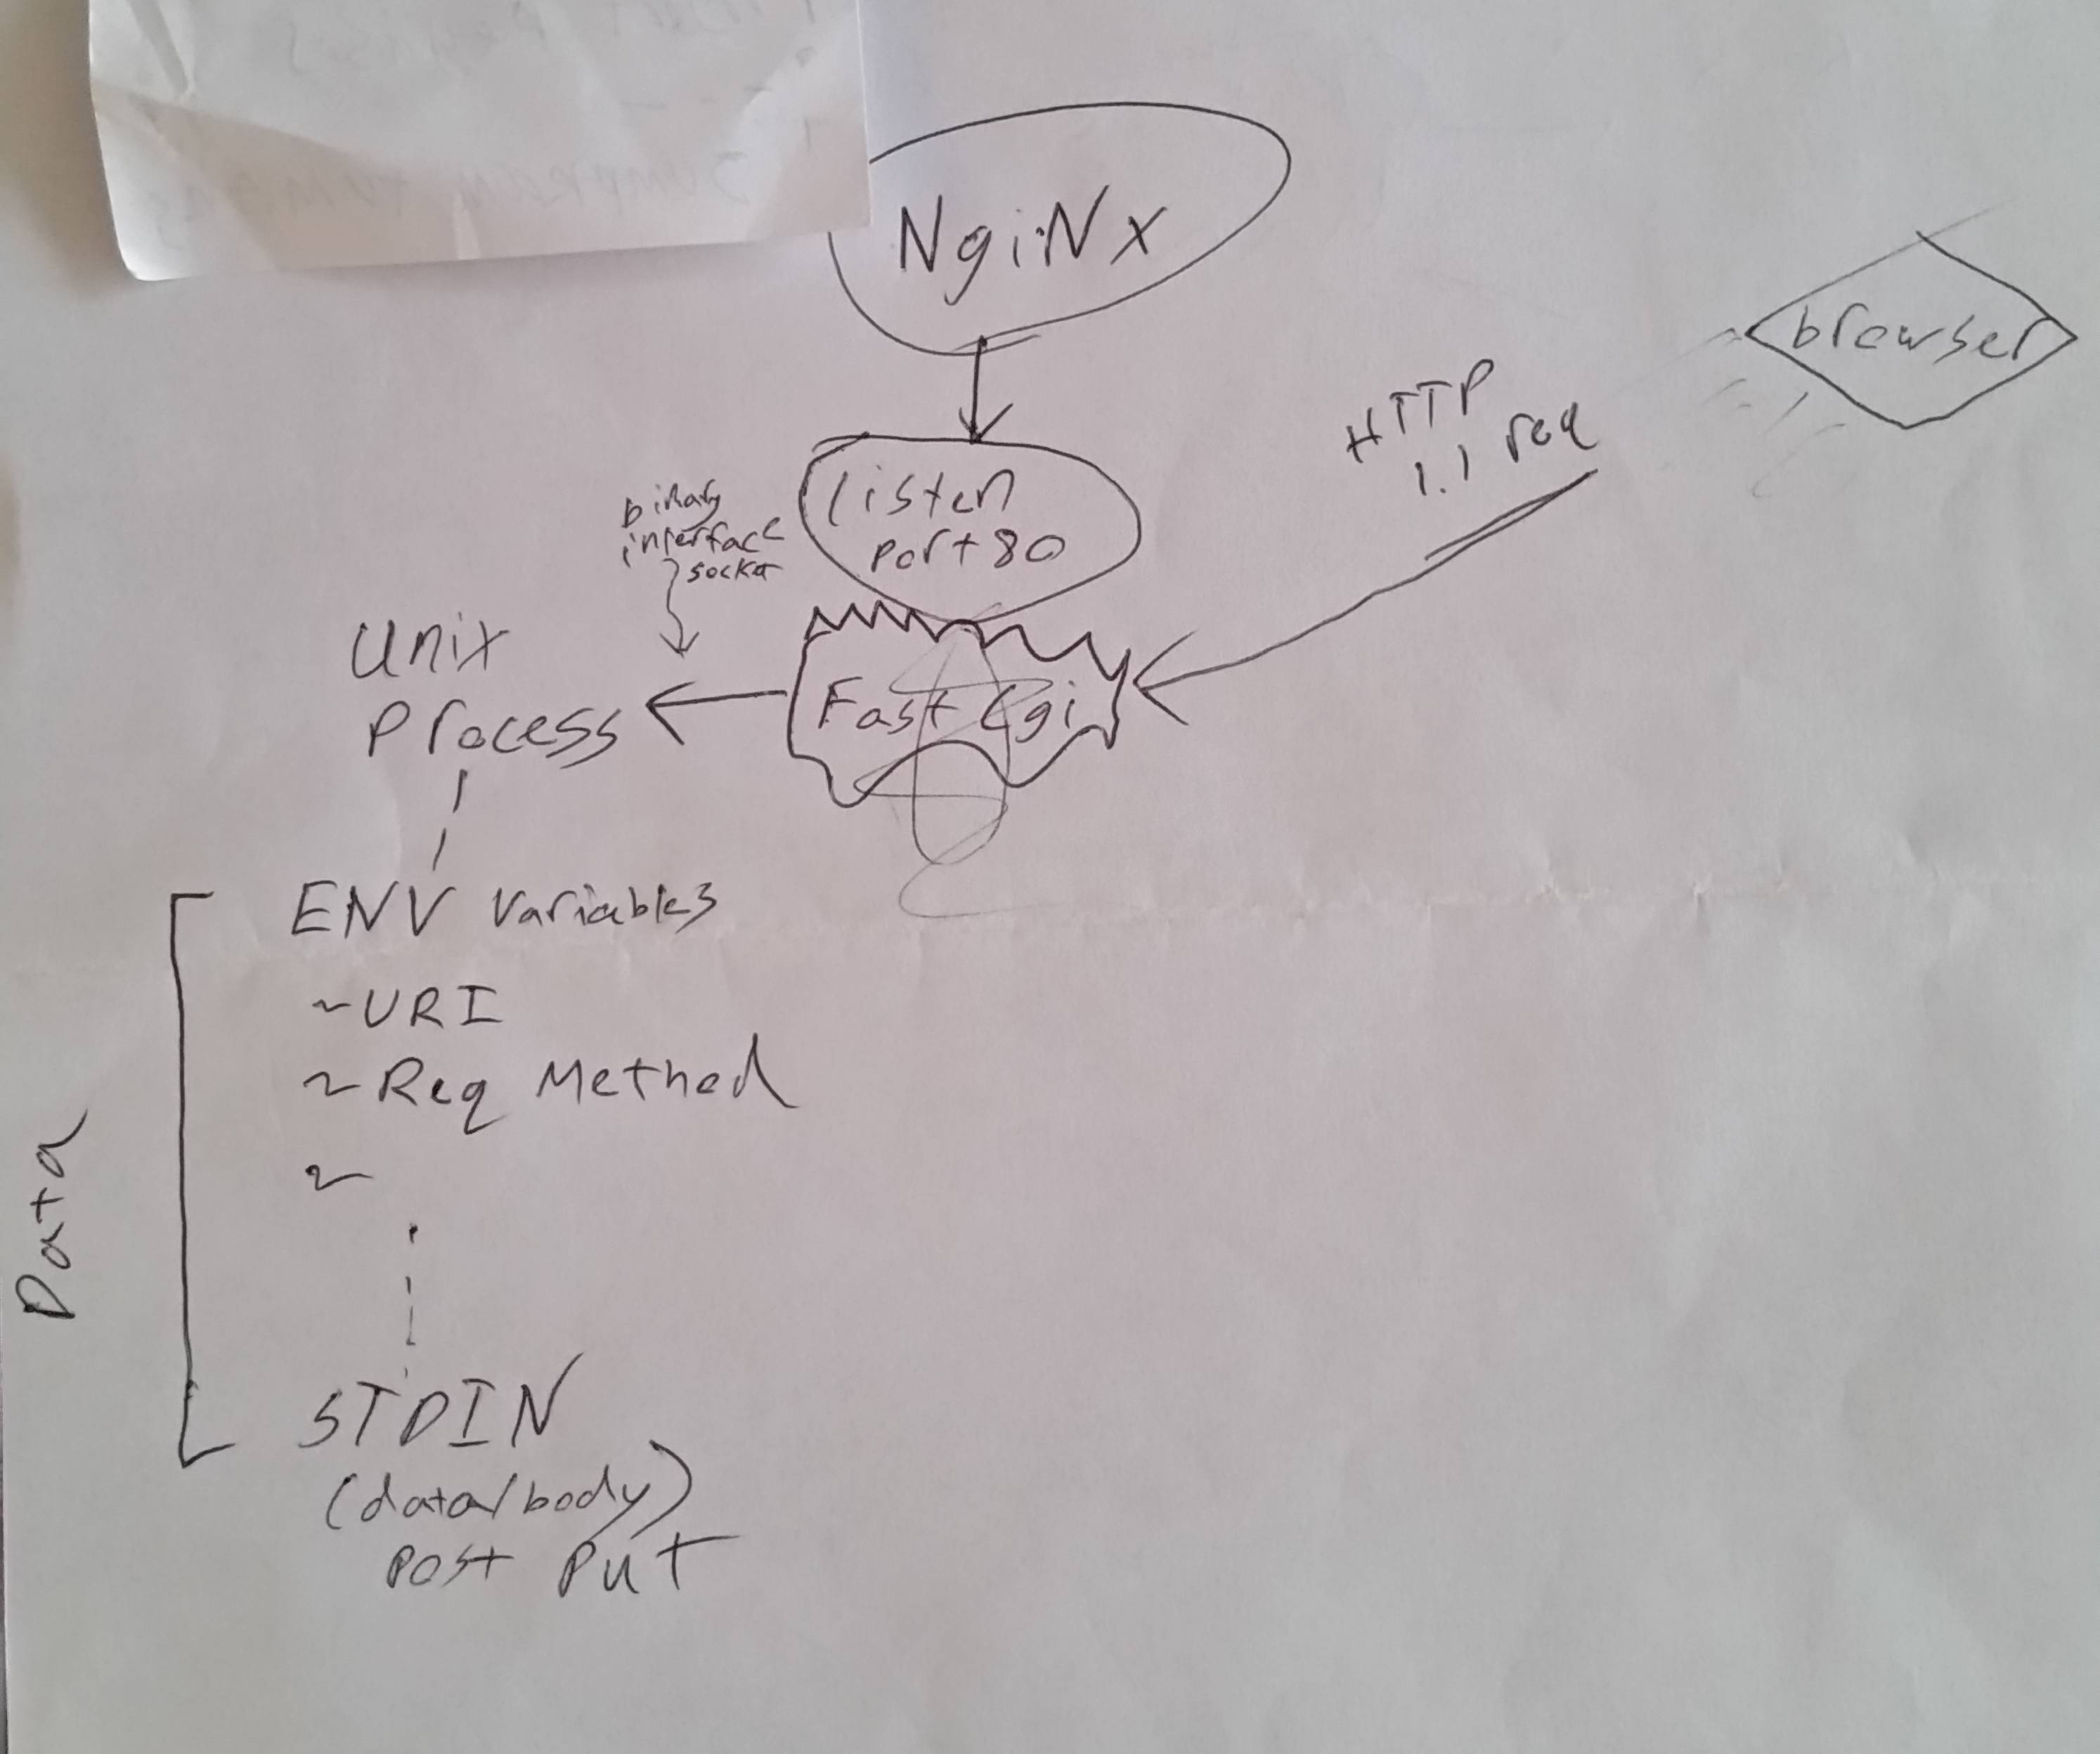 NgiNx
browser
HTTP
1.1 req
listen
port 80
binary
interface
socket
Unix
Process
Fast Cgi
ENV Variables
~URI
~Req Method
~
Data
STDIN
(data/body)
Post Put